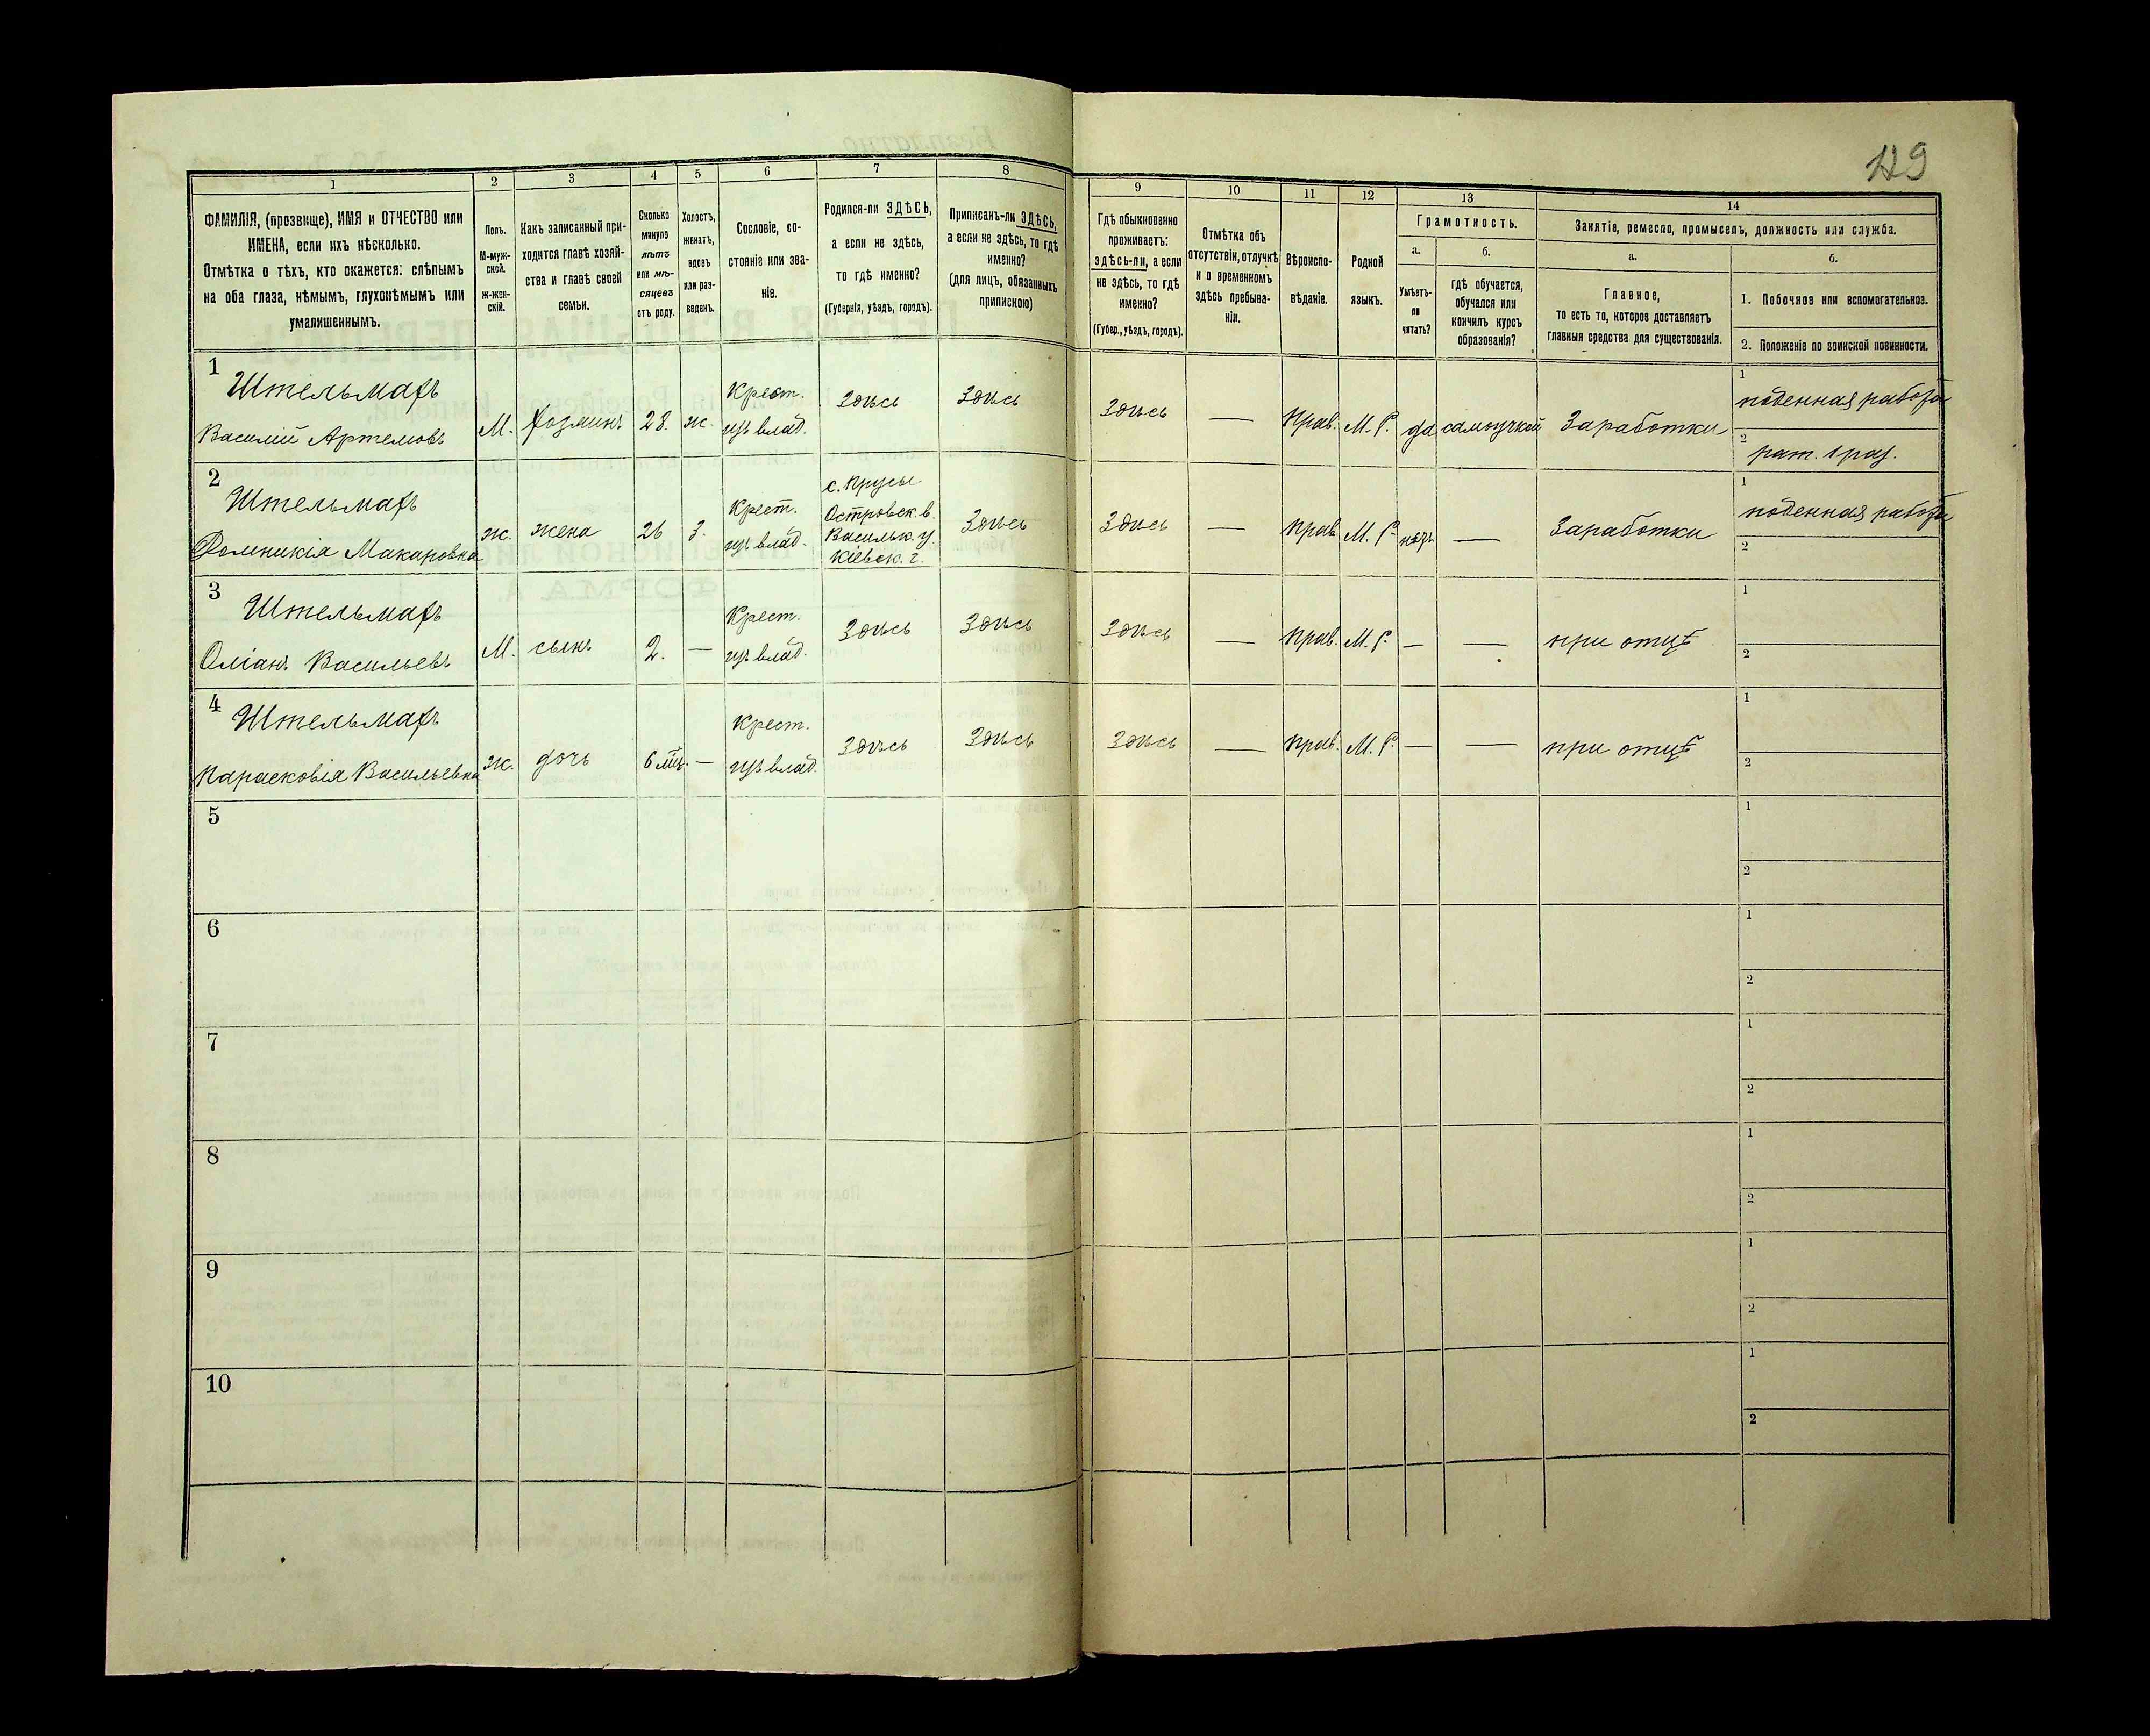 119
1
2
3
4
5
6
7
8
9
10
11
12
13
14
ФАМИЛІЯ, (прозвище), ИМЯ и ОТЧЕСТВО или
ИМЕНА, если ихъ нѣсколько.
Отмѣтка о тѣхъ, кто окажется: слѣпымъ
на оба глаза, нѣмымъ, глухонѣмымъ или
умалишеннымъ.
Полъ.
М-муж-
ской.
ж-жен-
скій.
Какъ записанный при-
ходится главѣ хозяй-
ства и главѣ своей
семьи.
Сколько
минуло
лѣтъ
или мѣ-
сяцевъ
отъ роду.
Холостъ,
женатъ,
вдовъ
или раз-
веденъ.
Сословіе, со-
стояніе или зва-
ніе.
Родился-ли ЗДѢСЬ,
а если не здѣсь,
то гдѣ именно?
(Губернія, уѣздъ, городъ).
Приписанъ-ли ЗДѢСЬ,
а если не здѣсь, то гдѣ
именно?
(для лицъ, обязанныхъ
припискою)
Гдѣ обыкновенно
проживаетъ:
здѣсь-ли, а если
не здѣсь, то гдѣ
именно?
(Губер., уѣздъ, городъ).
Отмѣтка объ
отсутствіи, отлучкѣ
и о временномъ
здѣсь пребыва-
ніи.
Вѣроиспо-
вѣданіе.
Родной
языкъ.
Грамотность.
а.
Умѣетъ-
ли
читать?
б.
гдѣ обучается,
обучался или
кончилъ курсъ
образованія?
Занятіе, ремесло, промыселъ, должность или служба.
а.
Главное,
то есть то, которое доставляетъ
главныя средства для существованія.
б.
1. Побочное или вспомогательное.
2. Положеніе по воинской повинности.
1
Штельмахъ
Василій Артемовъ
М.
хозяинъ
28.
ж.
Крест.
изъ влад.
Здѣсь
Здѣсь
Здѣсь
—
Прав.
М. Р.
да
самоучкой
Заработки
1
поденная работа
2
рат. 1 раз.
2
Штельмахъ
Домникія Макаровна
ж.
жена
26
з.
Крест.
изъ влад.
с. Прусы
Островск. в.
Васильк. у.
Кіевск. г.
Здѣсь
Здѣсь
—
Прав.
М. Р.
нѣтъ
—
Заработки
1
поденная работа
2
3
Штельмахъ
Оліанъ Васильевъ
М.
сынъ
2.
—
Крест.
изъ влад.
Здѣсь
Здѣсь
Здѣсь
—
Прав.
М. Р.
—
—
при отцѣ
1
2
4
Штельмахъ
Парасковія Васильевна
ж.
дочь
6 мѣс.
—
Крест.
изъ влад.
Здѣсь
Здѣсь
Здѣсь
—
Прав.
М. Р.
—
—
при отцѣ
1
2
5
1
2
6
1
2
7
1
2
8
1
2
9
1
2
10
1
2